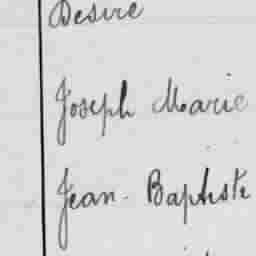 Desire
Joseph Marie
Jean-Baptiste